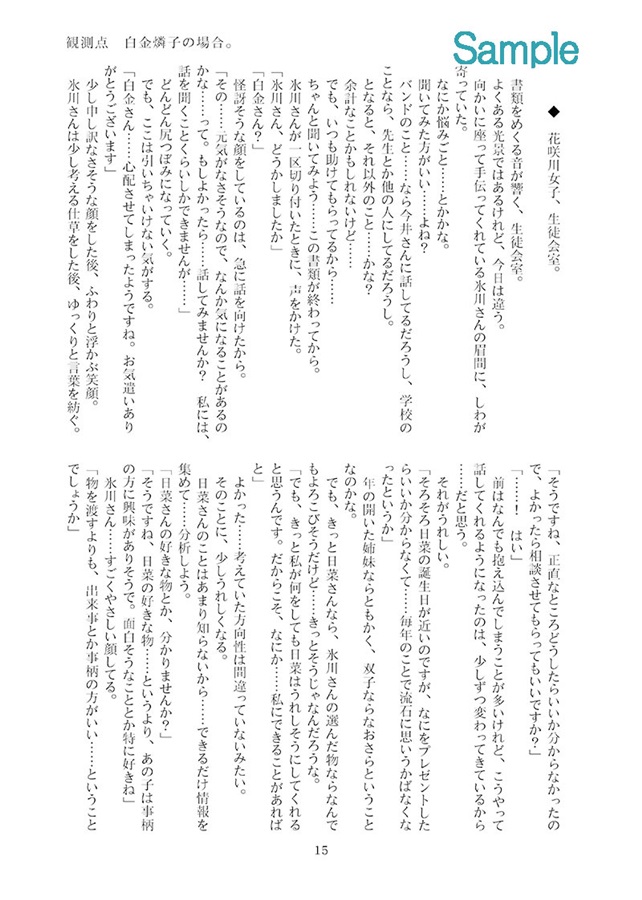 観測点　白金燐子の場合。
Sample
◆　花咲川女子、生徒会室。
書類をめくる音が響く、生徒会室。
よくある光景ではあるけれど、今日は違う。
向かいに座って手伝ってくれている氷川さんの眉間に、しわが
寄っていた。
なにか悩みごと……とかかな。
聞いてみた方がいい……よね？
バンドのこと……なら今井さんに話してるだろうし、学校の
ことなら、先生とか他の人にしてるだろうし。
となると、それ以外のこと……かな？
余計なことかもしれないけど……
でも、いつも助けてもらってるから……
ちゃんと聞いてみよう……この書類が終わってから。
氷川さんが一区切り付いたときに、声をかけた。
「氷川さん、どうかしましたか」
「白金さん？」
怪訝そうな顔をしているのは、急に話を向けたから。
「その……元気がなさそうなので、なんか気になることがあるの
かな……って。もしよかったら……話してみませんか？　私には、
話を聞くことくらいしかできませんが……」
どんどん尻つぼみになっていく。
でも、ここは引いちゃいけない気がする。
「白金さん……心配させてしまったようですね。お気遣いあり
がとうございます」
少し申し訳なさそうな顔をした後、ふわりと浮かぶ笑顔。
氷川さんは少し考える仕草をした後、ゆっくりと言葉を紡ぐ。
「そうですね、正直なところどうしたらいいか分からなかったの
で、よかったら相談させてもらってもいいですか？」
「……！　はい」
前はなんでも抱え込んでしまうことが多いけれど、こうやって
話してくれるようになったのは、少しずつ変わってきているから
……だと思う。
それがうれしい。
「そろそろ日菜の誕生日が近いのですが、なにをプレゼントした
らいいか分からなくて……毎年のことで流石に思いうかばなくな
ったというか」
年の開いた姉妹ならともかく、双子ならなおさらということ
なのかな。
でも、きっと日菜さんなら、氷川さんの選んだ物ならなんで
もよろこびそうだけど……きっとそうじゃなんだろうな。
「でも、きっと私が何をしても日菜はうれしそうにしてくれる
と思うんです。だからこそ、なにか……私にできることがあれば
と」
よかった……考えていた方向性は間違っていないみたい。
そのことに、少しうれしくなる。
日菜さんのことはあまり知らないから……できるだけ情報を
集めて……分析しよう。
「日菜さんの好きな物とか、分かりませんか？」
「そうですね、日菜の好きな物……というより、あの子は事柄
の方に興味がありそうで。面白そうなこととか特に好きね」
氷川さん……すごくやさしい顔してる。
「物を渡すよりも、出来事とか事柄の方がいい……ということ
でしょうか」
15